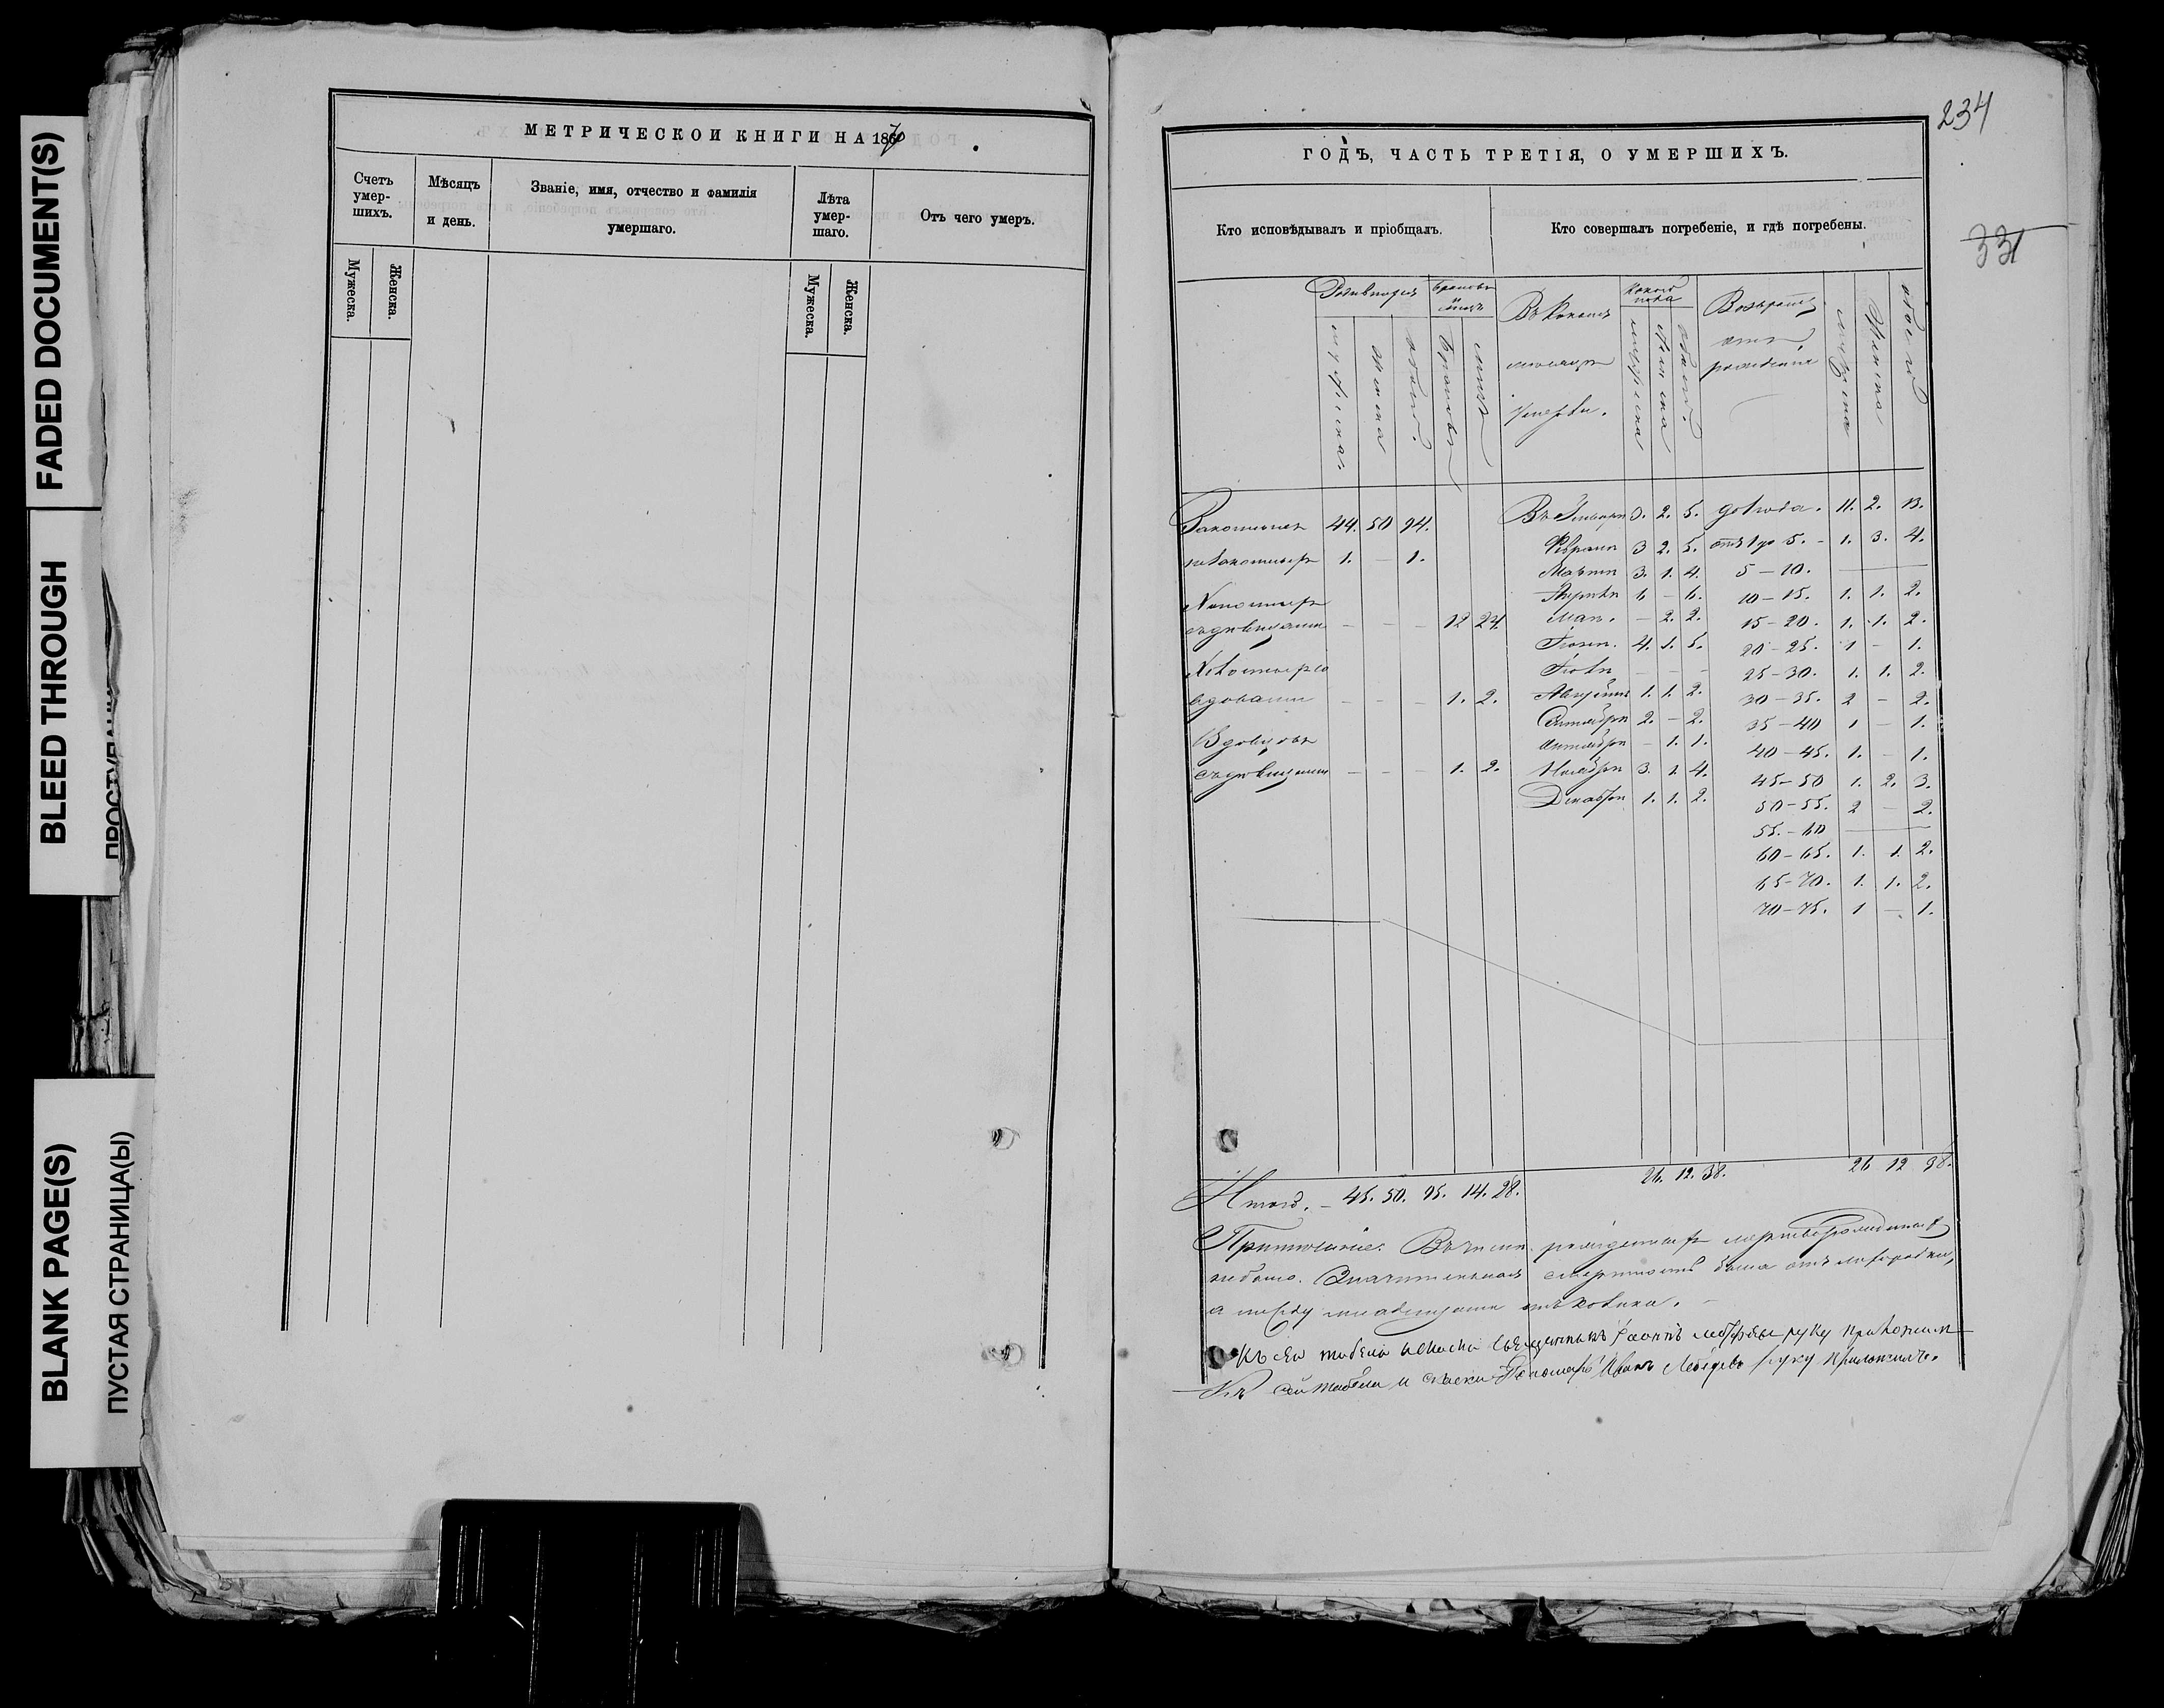 FADED DOCUMENT(S)
BLEED THROUGH
BLANK PAGE(S)
ПУСТАЯ СТРАНИЦА(Ы)
МЕТРИЧЕСКОЙ КНИГИ НА 1870
Счетъ умер-шихъ.
Мѣсяцъ и день.
Званіе, имя, отчество и фамилія умершаго.
Лѣта умер-шаго.
Отъ чего умеръ.
Мужеска.
Женска.
Мужеска.
Женска.
234
331
ГОДЪ, ЧАСТЬ ТРЕТІЯ, О УМЕРШИХЪ.
Кто исповѣдывалъ и пріобщалъ.
Кто совершалъ погребеніе, и гдѣ погребены.
мужеска женска обоего браковъ лицъ
умерли.
мужеска женска обоего
Возрастъ отъ рожденія
мужеска женска обоего
Законныхъ 44. 50 94.
незаконныхъ 1. – 1.
съ дѣвицами – – – 12 24.
вдовами – – – 1. 2.
Вдовцовъ
съ дѣвицами – – – 1. 2.
Въ Январѣ 3. 2. 5.
Февралѣ 3 2. 5.
Мартѣ 3. 1. 4.
Апрѣлѣ 6 – 6.
Маѣ. – 2. 2.
Іюнѣ. 4. 1. 5.
Іюлѣ – – –
Августѣ 1. 1. 2.
Сентябрѣ 2. – 2.
Октябрѣ – 1. 1.
Ноябрѣ 3. 1. 4.
Декабрѣ 1. 1. 2.
до 1 года. 11. 2. 13.
отъ 1 до 5. – 1. 3. 4.
5 – 10. –
10 – 15. 1. 1. 2.
15 – 20. 1. 1. 2.
20 – 25. 1 – 1.
25 – 30. 1. 1. 2.
30 – 35. 2 – 2.
35 – 40 1 – 1.
40 – 45. 1. – 1.
45 – 50 1. 2. 3.
50 – 55. 2 – 2.
55. – 60 –
60 – 65. 1. 1. 2.
65 – 70. 1. 1. 2.
70 – 75. 1 – 1.
26. 12. 38.
26 12 38.
Итого. – 45. 50. 95. 14. 28.
Примѣчаніе: Въ числѣ рожденныхъ мертворожденныхъ
не было. Значительная смертность была отъ лихорадки,
а между младенцами отъ
Къ сей табели священникъ руку приложилъ
Къ сей табели и Пономарь Иванъ Лебедевъ руку приложилъ.